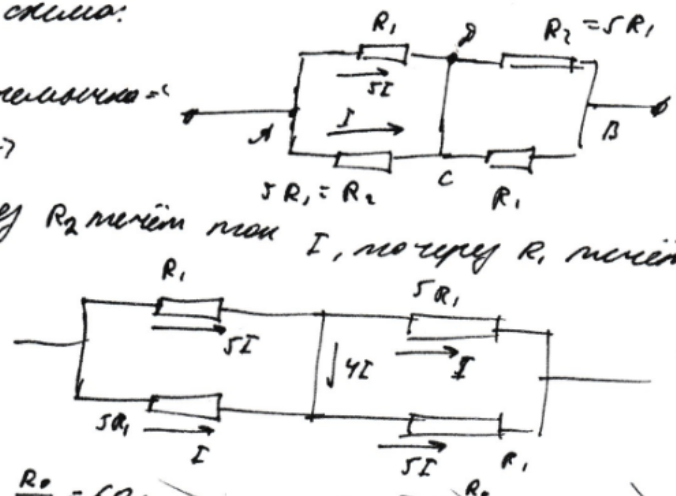 схема:
R₁
D
R₂ = 5R₁
5I
I
A
B
5R₁ = R₂
C
R₁
R₂ течёт ток I, то через R₁ течёт
R₁
5R₁
5I
4I
I
5R₁
I
5I
R₁